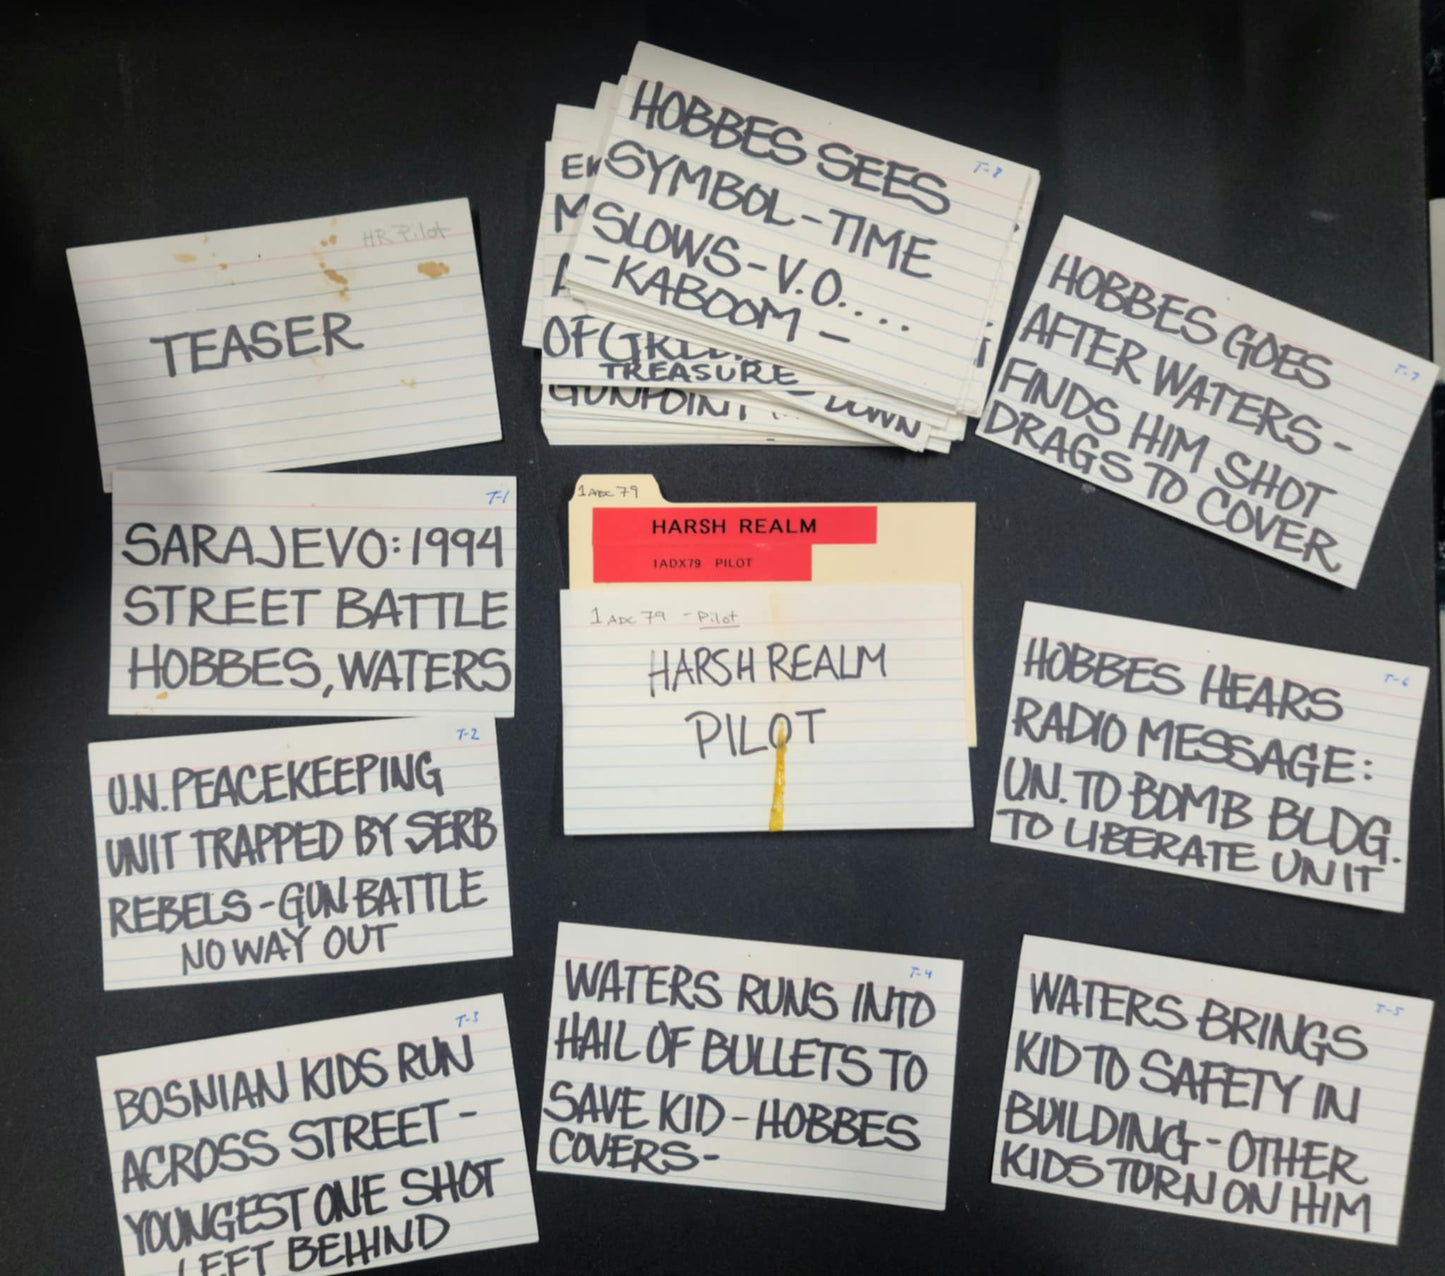 HR Pilot
TEASER
T-1
SARAJEVO: 1994
STREET BATTLE
HOBBES, WATERS
T-2
U.N. PEACEKEEPING
UNIT TRAPPED BY SERB
REBELS - GUN BATTLE
NO WAY OUT
T-3
BOSNIAN KIDS RUN
ACROSS STREET -
YOUNGEST ONE SHOT
LEFT BEHIND
T-4
WATERS RUNS INTO
HAIL OF BULLETS TO
SAVE KID - HOBBES
COVERS -
T-5
WATERS BRINGS
KID TO SAFETY IN
BUILDING - OTHER
KIDS TURN ON HIM
T-6
HOBBES HEARS
RADIO MESSAGE:
U.N. TO BOMB BLDG.
TO LIBERATE UNIT
T-7
HOBBES GOES
AFTER WATERS -
FINDS HIM SHOT
DRAGS TO COVER
T-8
HOBBES SEES
SYMBOL - TIME
SLOWS - V.O. ...
- KABOOM -
OF
TREASURE
GUNPOINT
DOWN
1 ADC 79
HARSH REALM
1ADX79 PILOT
1 ADC 79 - Pilot
HARSH REALM
PILOT